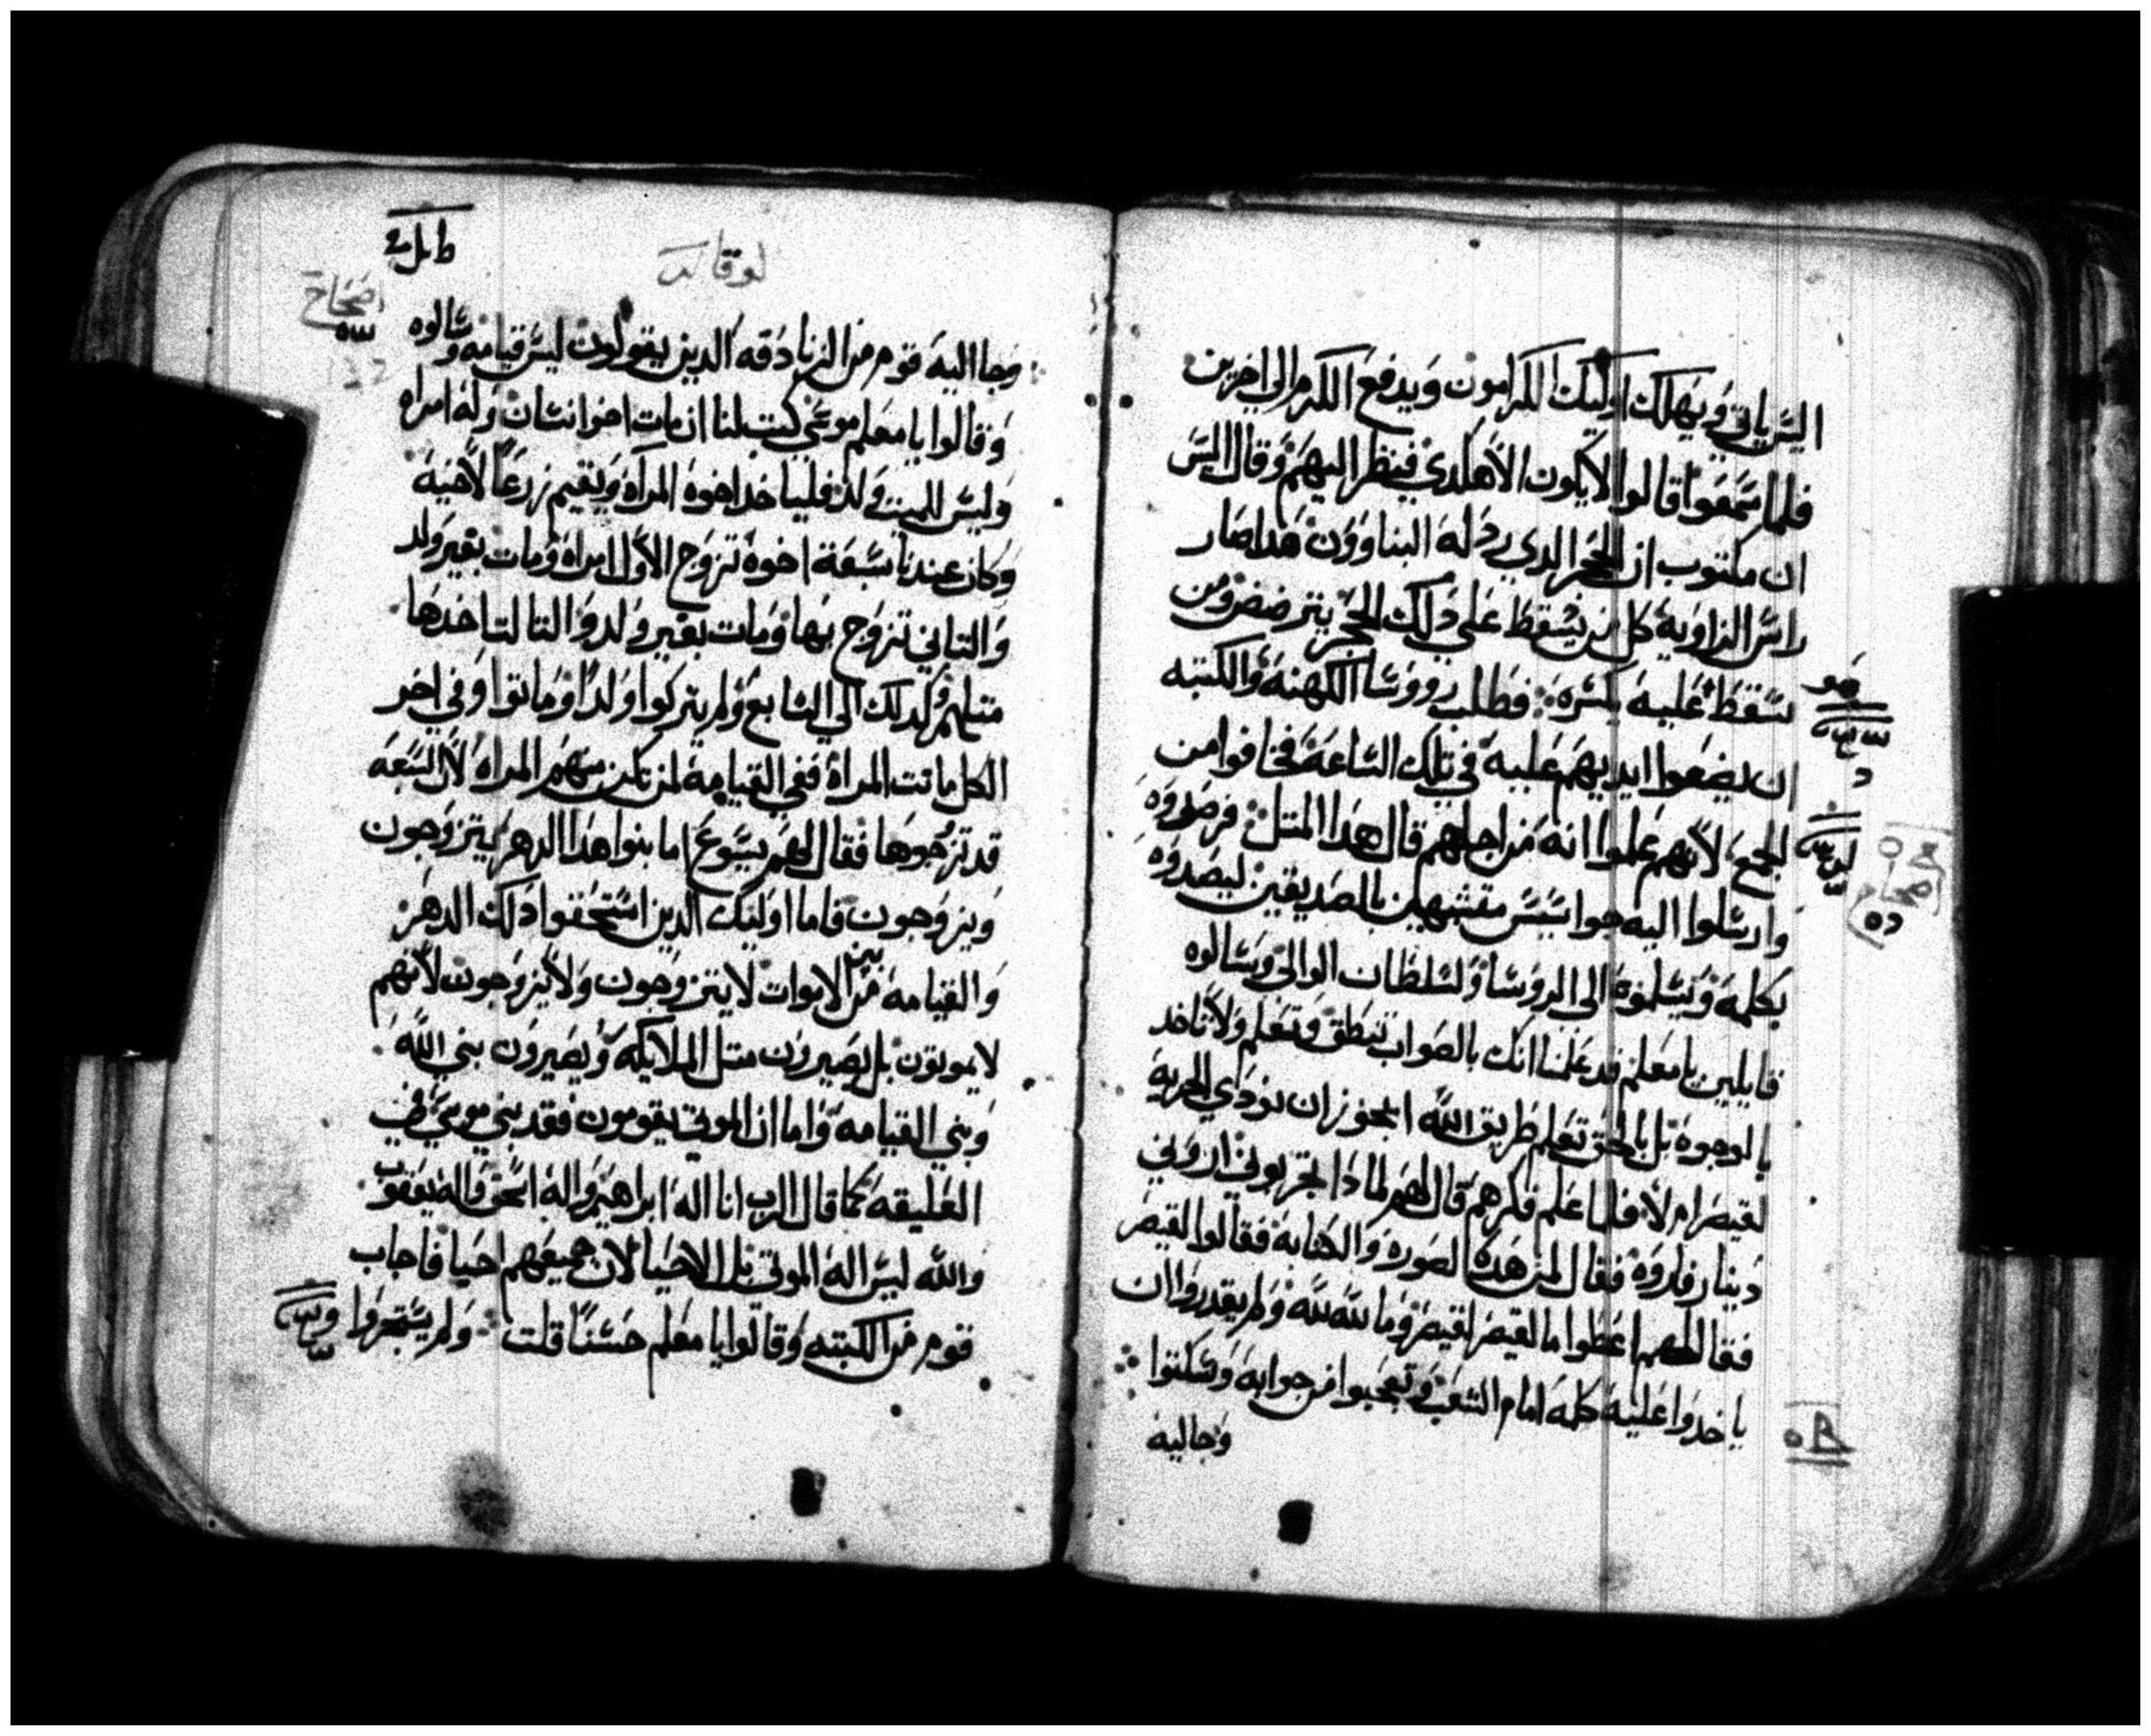 اليس ياتي ويهلك اوليك الكرامون ويدفع الكرم الي اخرين
فلما سمعوا قالوا لا يكون الاهكدي فنظر اليهم وقال اليس
ان مكتوب ان الحجر الدي ردله البناوون هدا صار
راس الزاويه كل من يسقط علي دلك الحجر يترضض ومن
سقط عليه يكسره فطلب رووسا الكهنه والكتبه
ان يضعوا ايديهم عليه في تلك الساعه فخافوا من
الجمع لانهم علموا انه من اجلهم قال هدا المتل فرصدوه
وارسلوا اليه جواسيس متشبهين بالصديقين ليصدوه
بكلمه ويسلموه الي الروسا ولسلطان الوالي وسالوه
قايلين يا معلم قد علمنا انك بالصواب تنطق وتعلم ولا تاخد
بالوجوه بل بالحق تعلم طريق الله ايجوز ان نودي الجزيه
لقيصر ام لا فلما علم فكرهم قال لهم لمادا تجربوني اروني
دينار فاروه فقال لمن هده الصوره والكتابه فقالوا لقيصر
فقال لهم اعطوا ما لقيصر لقيصر وما لله لله ولم يقدروا ان
ياخدوا عليه كلمه امام الشعب وتعجبوا من جوابه وسكتوا
وجا ليه
لوقا
اصحاح
وجا اليه قوم من الزنادقه الدين يقولون ليس قيامه وسالوه
وقالوا يا معلم موسي كتب لنا ان مات اخو انسان وله امراه
وليس للميت ولد فلياخد اخوه المراه ويقيم زرعا لاخيه
وكان عندنا سبعة اخوه تزوج الاول امراه ومات بغير ولد
والتاني تزوج بها ومات بغير ولد والتالت اخدها
متلهم وكدلك الي السابع ولم يتركوا ولدا وماتوا وفي اخر
الكل ماتت المراه ففي القيامة لمن تكن منهم المراه لان السبعه
قد تزوجوها فقال لهم يسوع اما بنوا هدا الدهر يتزوجون
ويزوجون فاما اوليك الدين استحقوا دلك الدهر
والقيامه من بين الاموات لا يتزوجون ولا يزوجون لانهم
لا يموتون بل يصيرون متل الملايكه ويصيرون بني الله
وبني القيامه واما ان الموتي يقومون فقد بني موسي في
العليقه كما قال الرب انا اله ابراهيم واله اسحق واله يعقوب
والله ليس اله الموتي بل الاحيا لان جميعهم احيا فاجاب
قوم من الكتبه وقالوا يا معلم حسنا قلت ولم يستجروا